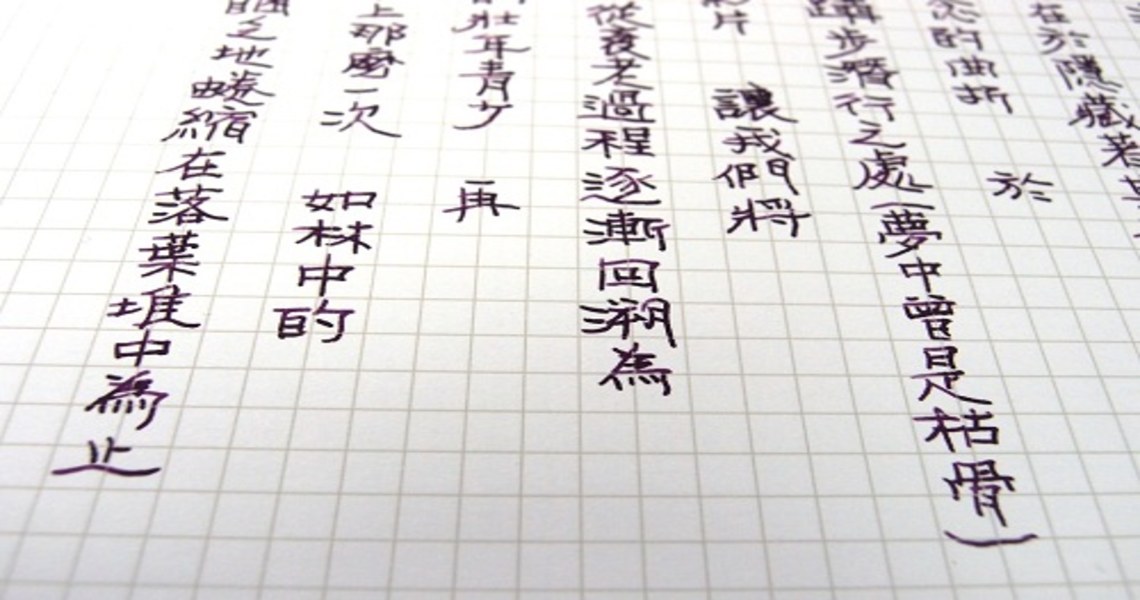 在於隱藏著
的曲折 於
躡步潛行之處(夢中曾是枯骨)
片 讓我們將
從衰老過程逐漸回溯為
壯年青少 再
上那麼一次 如林中的
之地蜷縮在落葉堆中為止